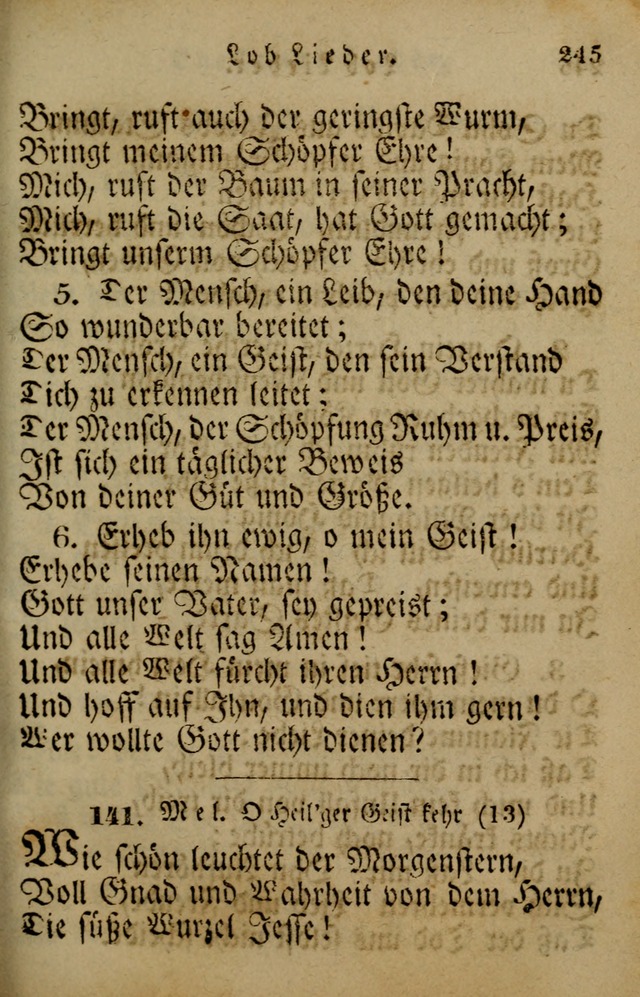 Lob Lieder. 245
Bringt, ruft auch der geringste Wurm,
Bringt meinem Schöpfer Ehre!
Mich, ruft der Baum in seiner Pracht,
Mich, ruft die Saat, hat Gott gemacht;
Bringt unserm Schöpfer Ehre!
5. Der Mensch, ein Leib, den deine Hand
So wunderbar bereitet;
Der Mensch, ein Geist, den sein Verstand
Dich zu erkennen leitet;
Der Mensch, der Schöpfung Ruhm u. Preis,
Ist sich ein täglicher Beweis
Von deiner Güt und Größe.
6. Erheb ihn ewig, o mein Geist!
Erhebe seinen Namen!
Gott unser Vater, sey gepreist;
Und alle Welt sag Amen!
Und alle Welt fürcht ihren Herrn!
Und hoff auf Ihn, und dien ihm gern!
Wer wollte Gott nicht dienen?
141. Mel. O Heil'ger Geist kehr (13)
Wie schön leuchtet der Morgenstern,
Voll Gnad und Wahrheit von dem Herrn,
Die süße Wurzel Jesse!